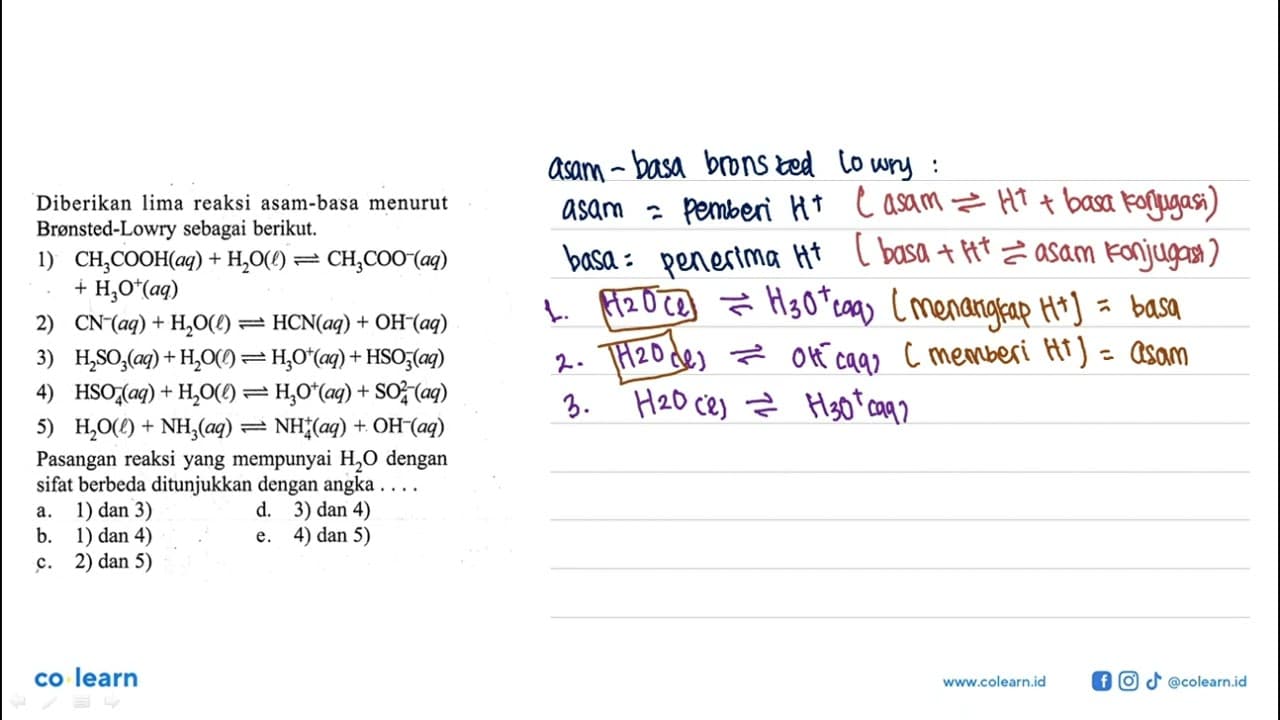 Diberikan lima reaksi asam-basa menurut
Brønsted-Lowry sebagai berikut.
1) CH₃COOH(aq) + H₂O(ℓ) ⇌ CH₃COO⁻(aq)
+ H₃O⁺(aq)
2) CN⁻(aq) + H₂O(ℓ) ⇌ HCN(aq) + OH⁻(aq)
3) H₂SO₃(aq) + H₂O(ℓ) ⇌ H₃O⁺(aq) + HSO₃⁻(aq)
4) HSO₄⁻(aq) + H₂O(ℓ) ⇌ H₃O⁺(aq) + SO₄²⁻(aq)
5) H₂O(ℓ) + NH₃(aq) ⇌ NH₄⁺(aq) + OH⁻(aq)
Pasangan reaksi yang mempunyai H₂O dengan
sifat berbeda ditunjukkan dengan angka . . . .
a. 1) dan 3) d. 3) dan 4)
b. 1) dan 4) e. 4) dan 5)
c. 2) dan 5)
asam - basa bronsted lowry :
asam = pemberi H⁺ ( asam ⇌ H⁺ + basa konjugasi)
basa = penerima H⁺ ( basa + H⁺ ⇌ asam konjugasi)
1. H2O(l) ⇌ H3O⁺(aq) (menangkap H⁺) = basa
2. H2O(l) ⇌ OH⁻(aq) (memberi H⁺) = asam
3. H2O(l) ⇌ H3O⁺(aq)
co learn
www.colearn.id
@colearn.id